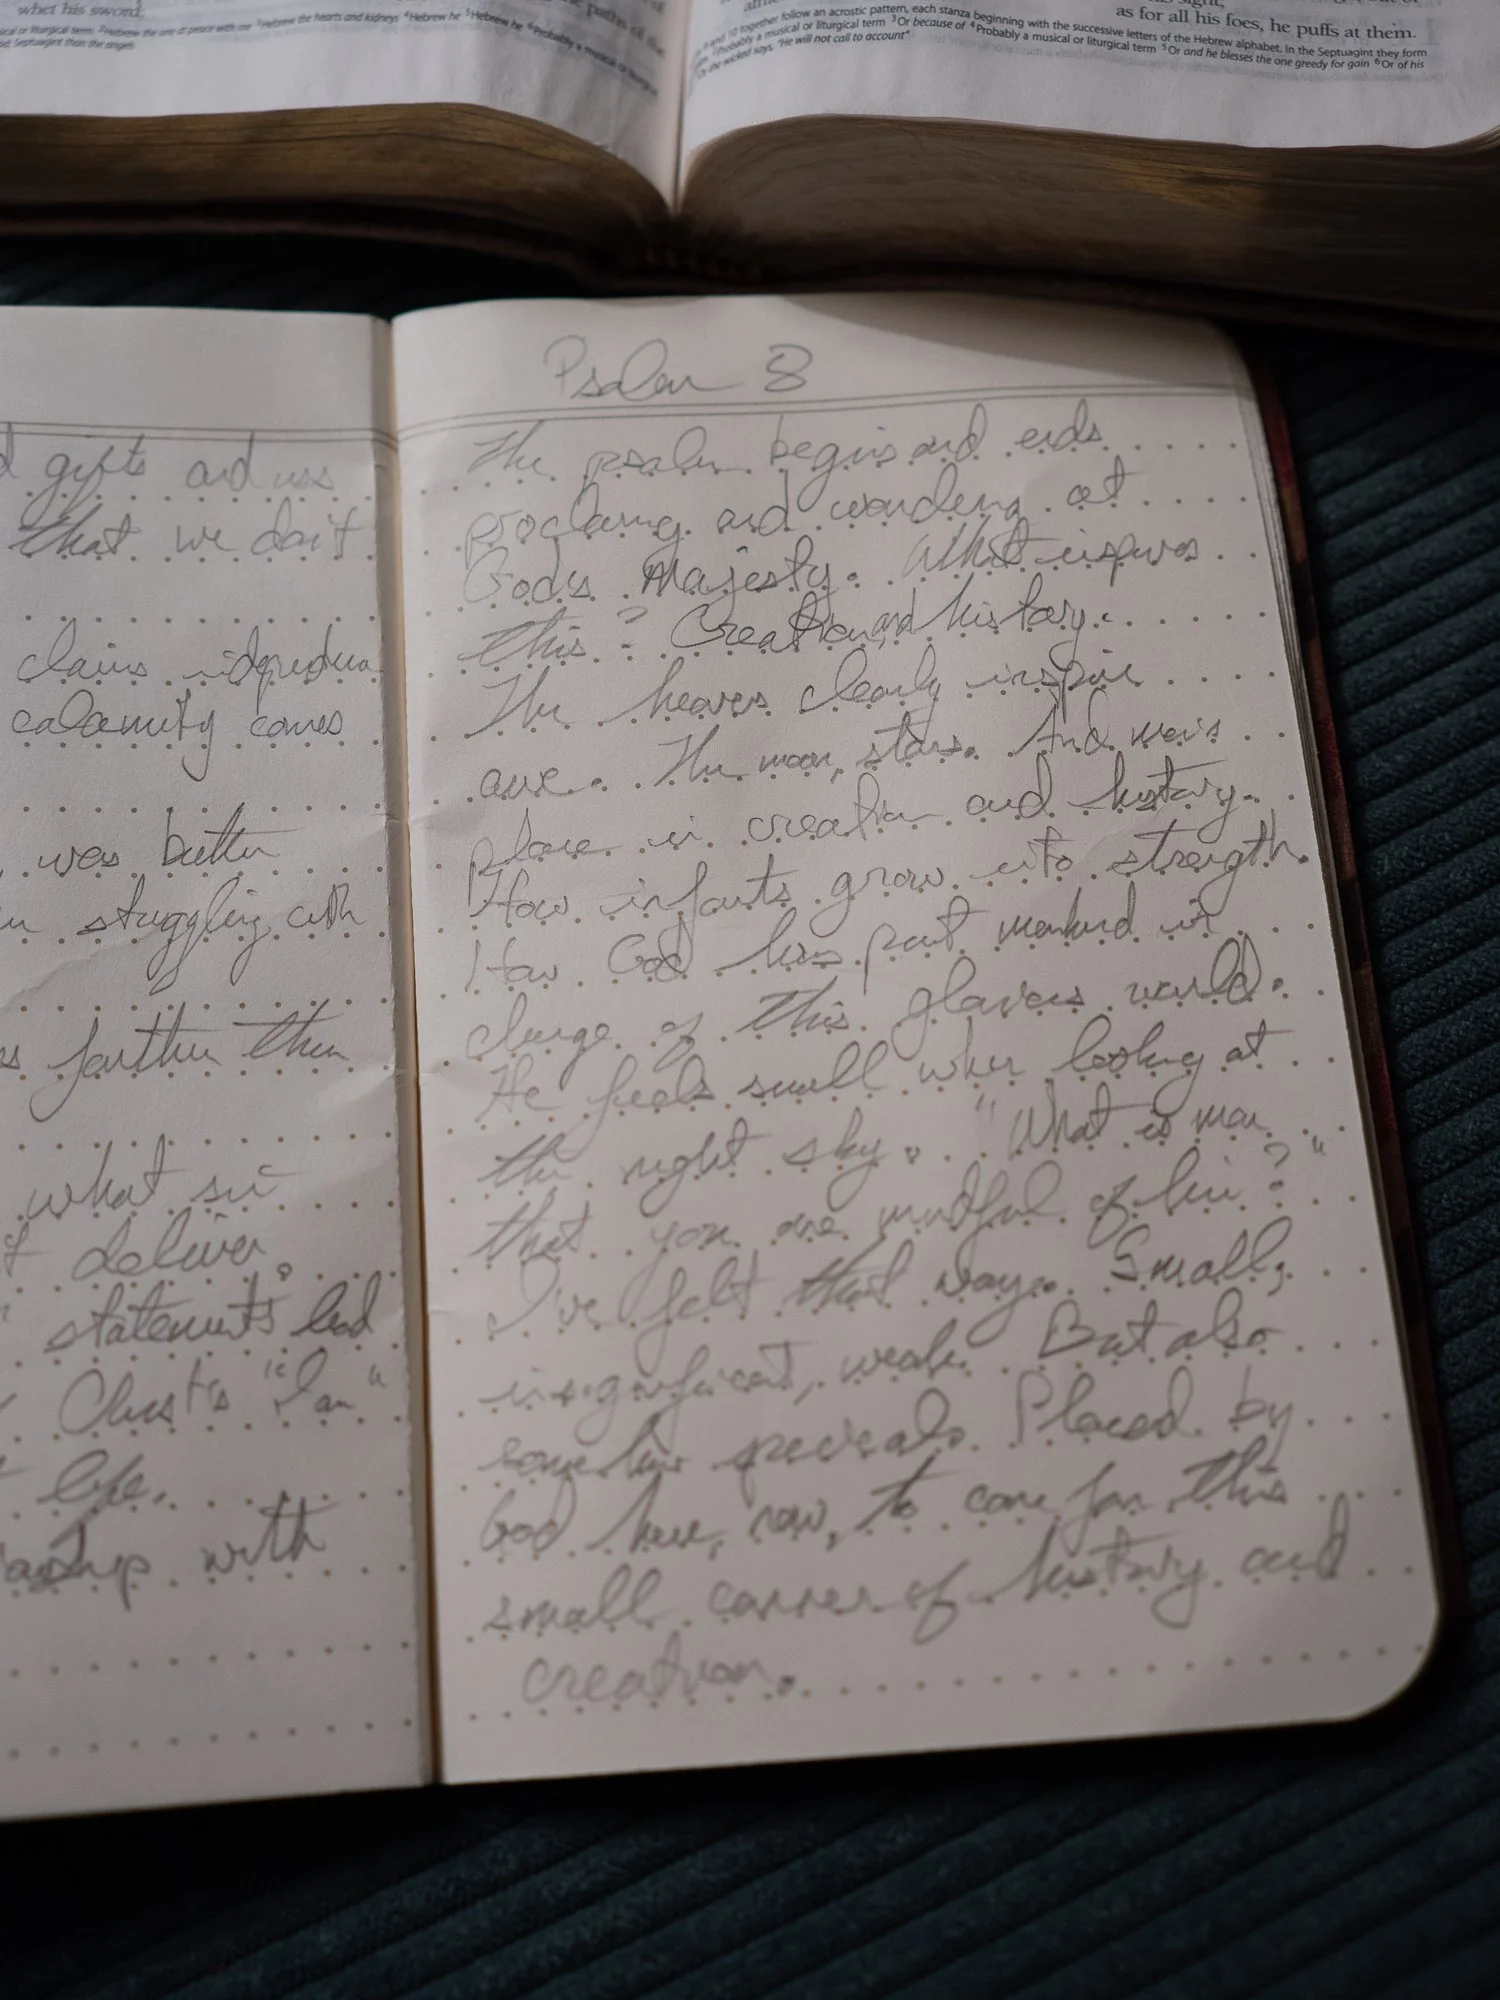 whet his sword;
paths of the
cal or liturgical term 2Hebrew the hearts and kidneys 4Hebrew he 5Hebrew he 6Probably a musical or liturgical
Septuagint than the angels
as for all his foes, he puffs at them.
9 and 10 together follow an acrostic pattern, each stanza beginning with the successive letters of the Hebrew alphabet. In the Septuagint they form
2Probably a musical or liturgical term 3Or because of 4Probably a musical or liturgical term 5Or and he blesses the one greedy for gain 6Or of his
Or the wicked says, "He will not call to account"
gifts and uss
that we don't
claims independen
calamity comes
was better
struggling with
farther then
what sin
deliver.
statements lead
Christ's "I am"
life.
with
Psalm 8
The psalm begins and ends
proclaiming and wondering at
God's Majesty. What inspires
this? Creation and history.
The heavens clearly inspire
awe. The moon, stars. And man's
place in creation and history.
How infants grow into strength.
How God has put mankind in
charge of this glorious world.
He feels small when looking at
the night sky. "What is man
that you are mindful of him?"
I've felt that way. Small,
insignificant, weak. But also
somehow precious. Placed by
God here, now, to care for this
small corner of history and
creation.